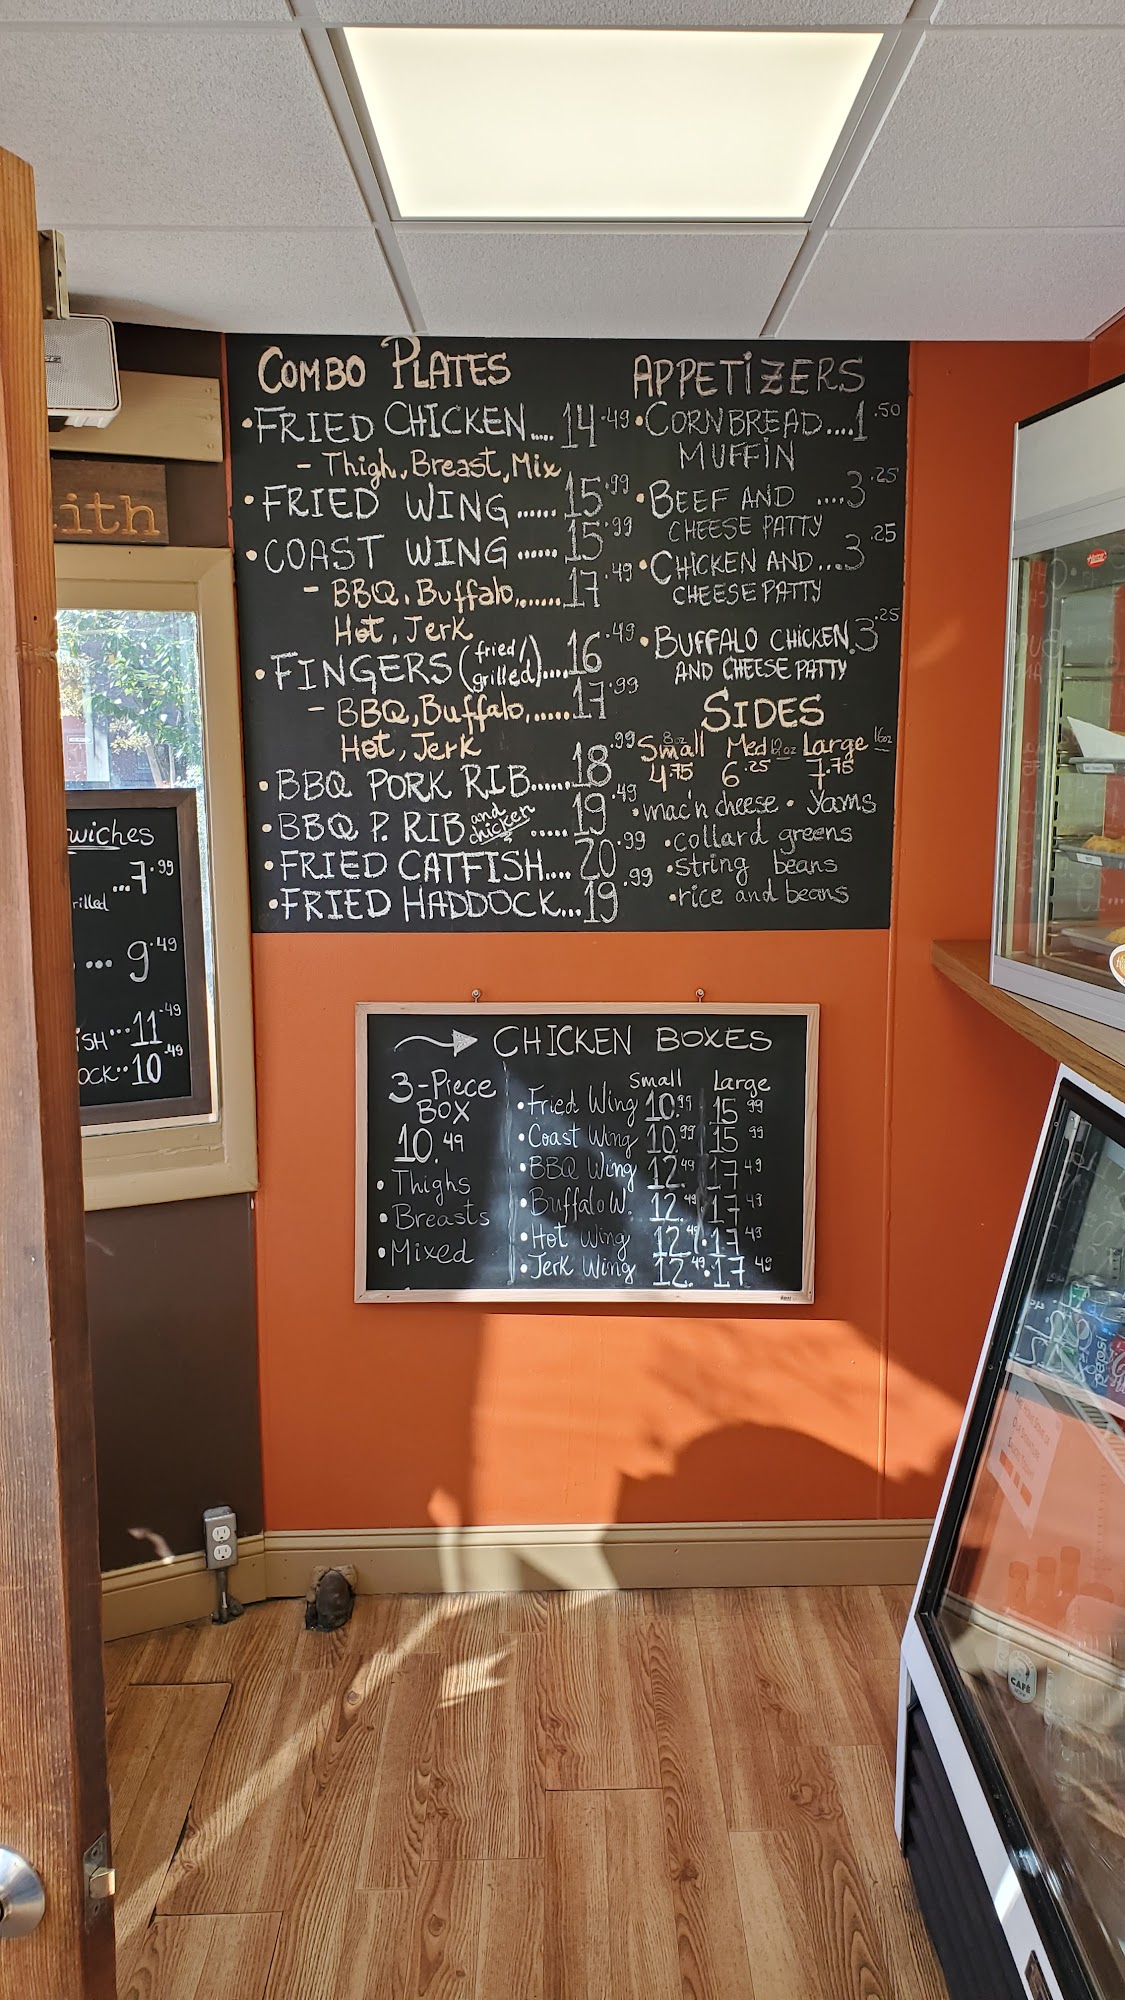 COMBO PLATES
• FRIED CHICKEN.... 14.49
- Thigh, Breast, Mix
• FRIED WING ...... 15.99
• COAST WING ...... 15.99
- BBQ, Buffalo, ...... 17.49
Hot, Jerk
• FINGERS (fried/grilled).... 16.49
- BBQ, Buffalo, ...... 17.99
Hot, Jerk
• BBQ PORK RIB...... 18.99
• BBQ P. RIB and chicken ..... 19.49
• FRIED CATFISH.... 20.99
• FRIED HADDOCK... 19.99
APPETIZERS
• CORNBREAD .... 1.50
MUFFIN
• BEEF AND .... 3.25
CHEESE PATTY
• CHICKEN AND ... 3.25
CHEESE PATTY
• BUFFALO CHICKEN. 3.25
AND CHEESE PATTY
SIDES
Small 8oz Med 12oz Large 16oz
4.75 6.25 7.75
• mac'n cheese • Yams
• collard greens
• string beans
• rice and beans
ith
wiches
...7.99
rilled
... 9.49
ISH...11.49
OCK..10.49
CHICKEN BOXES
3-Piece
BOX
10.49
• Thighs
• Breasts
• Mixed
Small Large
• Fried Wing 10.99 15.99
• Coast Wing 10.99 15.99
• BBQ Wing 12.49 17.49
• Buffalo W. 12.49 17.49
• Hot Wing 12.49 • 17.49
• Jerk Wing 12.49 • 17.49
pepsi
CAFÉ